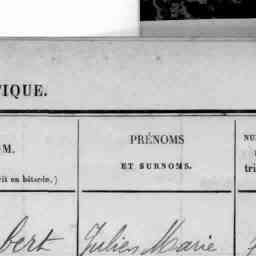 TIQUE.
OM.
rit en bâtarde.)
PRÉNOMS
ET SURNOMS.
NU
tri
bert
Jules Marie